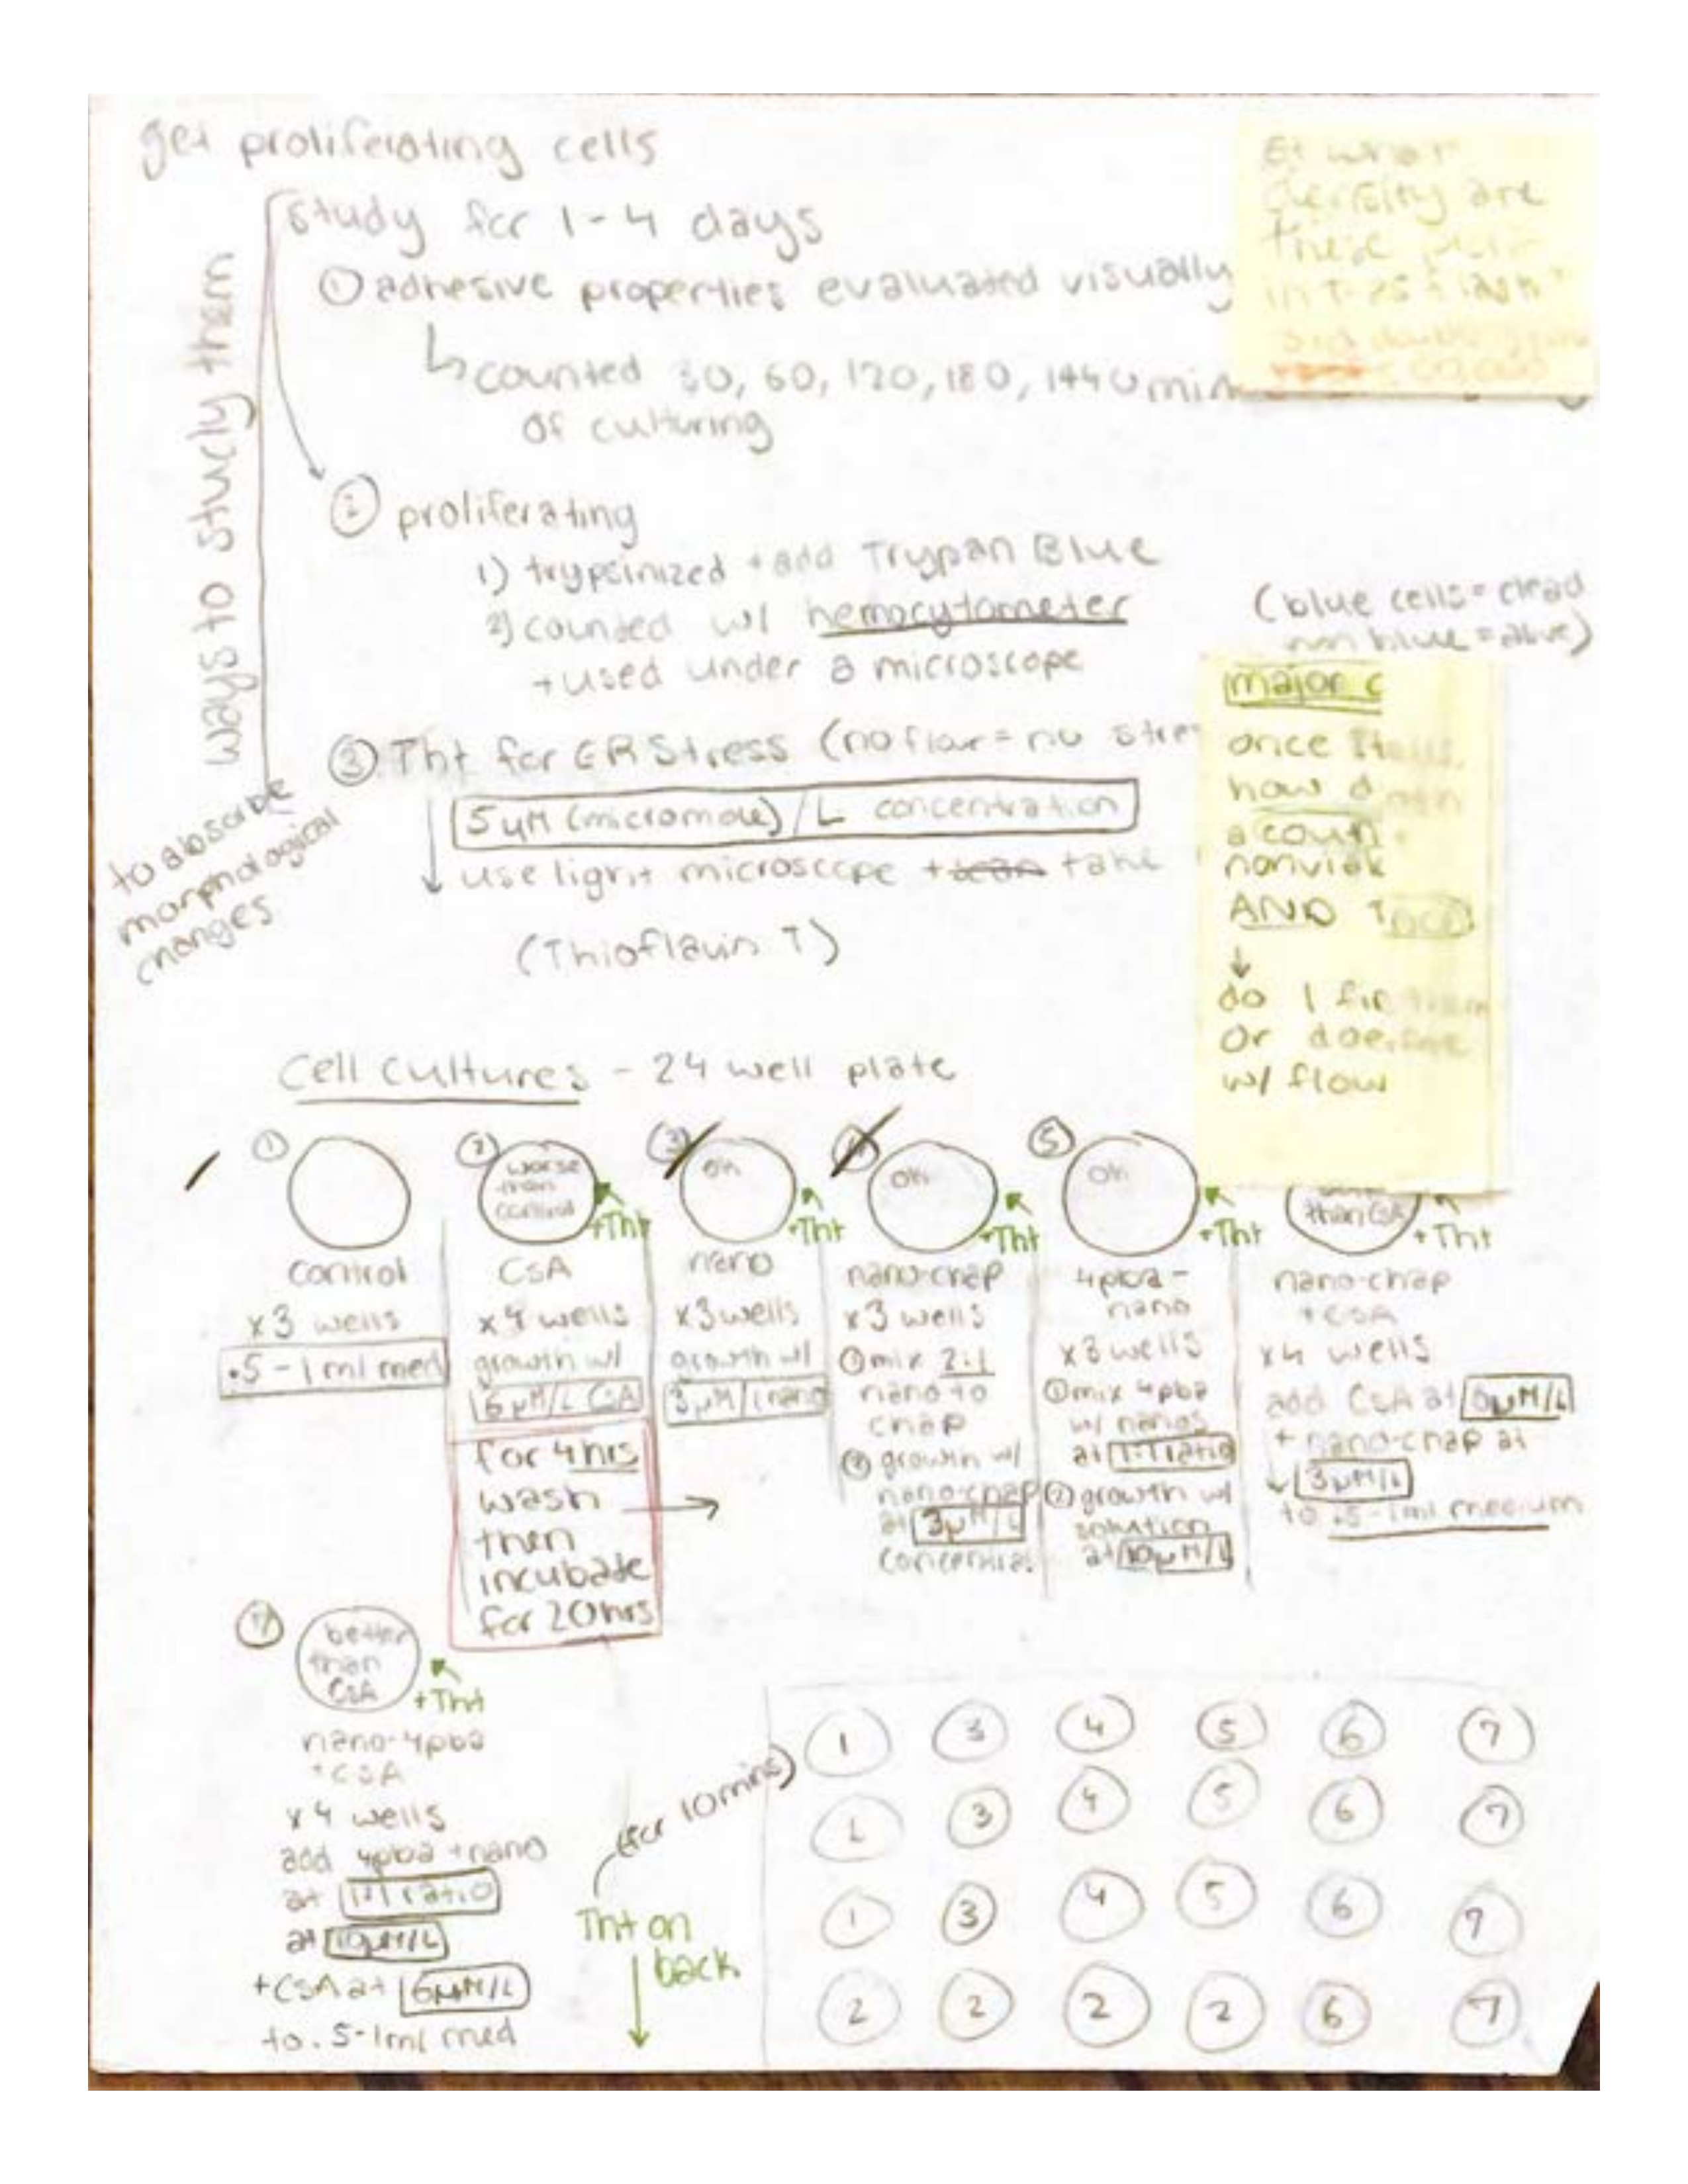 get proliferating cells
study for 1-4 days
ways to study them
① adhesive properties evaluated visually
↳ counted 30, 60, 120, 180, 1440 min
of culturing
② proliferating
1) trypsinized + add Trypan Blue
2) counted w/ hemocytometer
+ used under a microscope
(blue cells = dead
non blue = alive)
③ Tht for ER Stress (no flour = no stre
5 µM (micromole)/L concentration
use light microscope + take
(Thioflavin T)
to abosorbe
morphological
changes
at what
density are
these
in T-25 flask
major c
once
how d
a count
nonviab
AND T
↓
do I fi
or does
w/ flow
Cell cultures - 24 well plate
①
control
x3 wells
.5 - 1 ml med
②
worse
than
control
+Tht
CSA
x4 wells
growth w/
6 µM/L CSA
for 4 hrs
wash
then
incubate
for 20 hrs
③
Ok
+Tht
nano
x3 wells
growth w/
3 µM/L nano
④
Ok
+Tht
nano-chap
x3 wells
① mix 2:1
nano to
chap
② growth w/
nano-chap
at 3 µM/L
concentra.
⑤
Ok
+Tht
4pba-
nano
x3 wells
① mix 4pba
w/ nanos
at 1:1 ratio
② growth w/
solution
at 10 µM/L
than CSA
+Tht
nano-chap
+ CSA
x4 wells
add CsA at 6 µM/L
+ nano-chap at
3 µM/L
to .5-1ml medium
⑦
better
than
CSA
+Tht
nano-4pba
+CSA
x4 wells
add 4pba + nano
at 1:1 ratio
at 10 µM/L
+CSA at 6 µM/L
to .5-1ml med
(for 10 mins)
Tht on
back
1 3 4 5 6 7
1 3 4 5 6 7
1 3 4 5 6 7
2 2 2 2 6 7